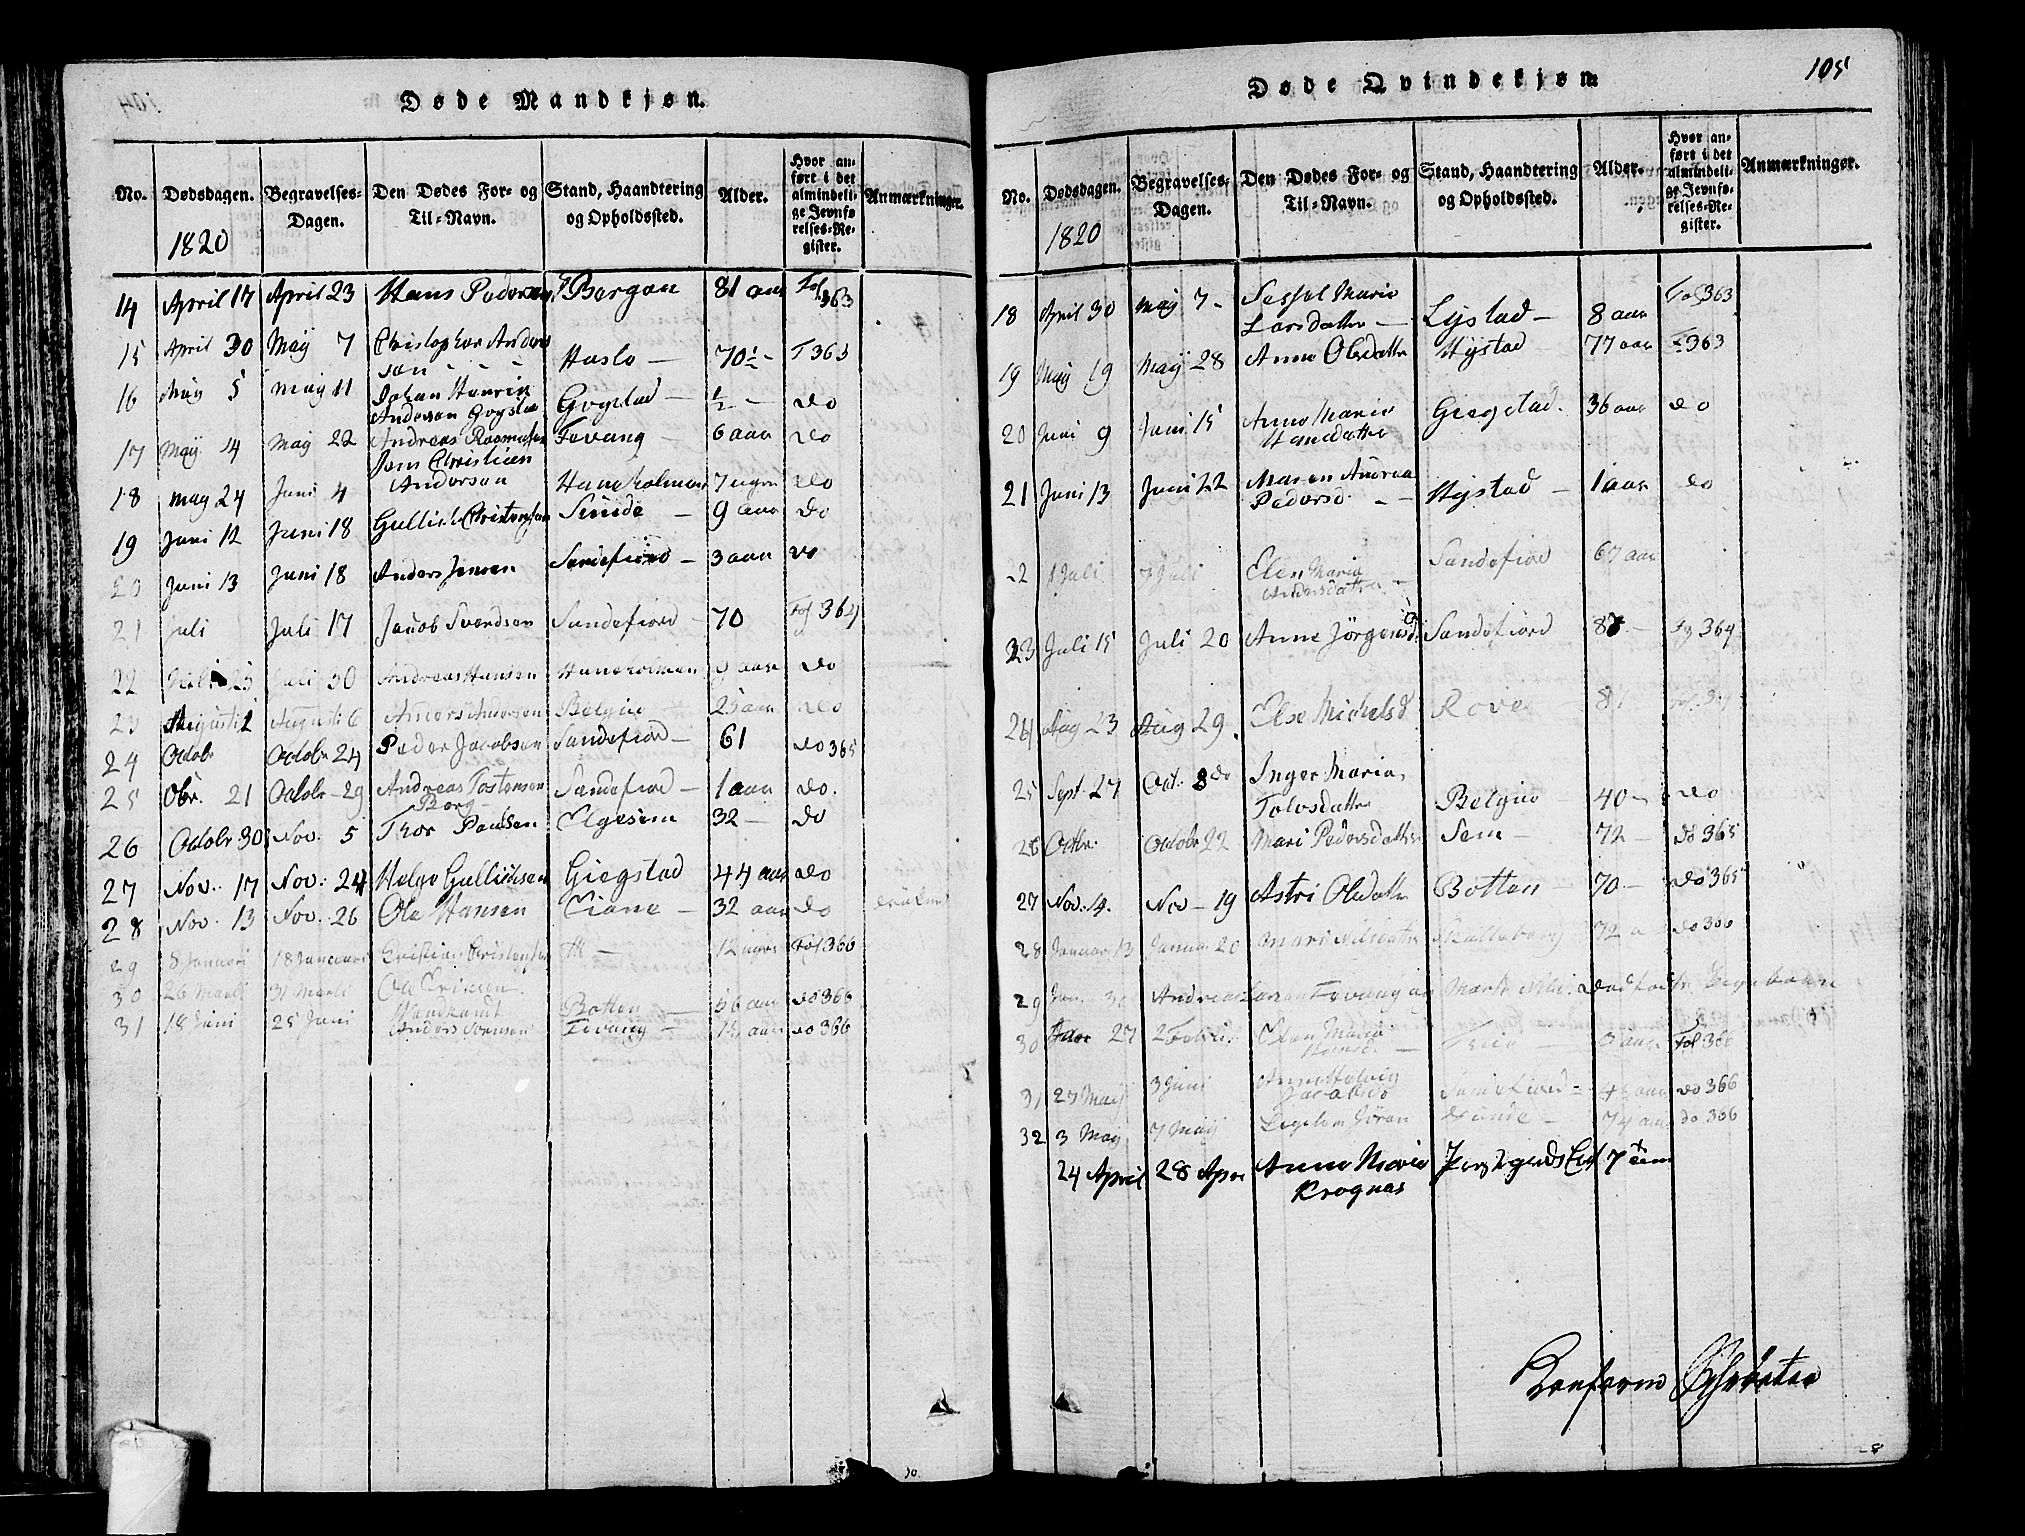 Døde Mandkjøn.
No. Dødsdagen. Begravelses-Dagen. Den Dødes For- og Til-Navn. Stand, Haandtering og Opholdssted. Alder. Hvor anført i det almindelige Jevnførelses-Register. Anmærkninger.
1820
14 April 17 April 23 Hans Pedersen Bergan 81 aar Fol 363
15 April 30 May 7 Christopher Anders
son Haslo 70½ F 363
16 May 5 May 11 Johan Henrik
Anderson Gogstad Gogstad ½ do
17 May 14 May 22 Andreas Rasmusen Fevang 6 aar do
18 may 24 Juni 4 Jens Christian
Andersen Haneholmen 7 uger do
19 Juni 12 Juni 18 Gullich Christensen Sunde 9 aar do
20 Juni 13 Juni 18 Anders Jensen Sandefiord 3 aar do
21 Juli Juli 17 Jacob Svendsen Sandefiord 70 Fol 364
22 Juli 25 Juli 30 Andreas Hansen Haneholmen aar do
23 Augusti 2 Augusti 6 Anders Andersen Belgiu 25 aar do
24 Octobr Octobr 24 Peder Jacobsen Sandefiord 61 do 365
25 Obr. 21 Octobr 29 Andreas Tostensen
Berg Sandefiord 1 aar do.
26 Octobr 30 Nov. 5 Thor Paulsen Elgesem 32 do
27 Nov. 17 Nov. 24 Helge Gullichsen Giegstad 44 aar do
28 Nov. 13 Nov. 26 Ole Hansen Ciane 32 aar do
29 8 Januari 18 Januari Cristian Cristensen 12 uger Fol 366
30 26 Marti 31 Marti Ole Ericsen
Botten 56 aar do 366
31 18 Juni 25 Juni Anders Sørensen Fevang aar do 366
Døde Qvindekjøn
105
No. Dødsdagen. Begravelses-Dagen. Den Dødes For- og Til-Navn. Stand, Haandtering og Opholdssted. Alder. Hvor anført i det almindelige Jevnførelses-Register. Anmærkninger.
1820
18 April 30 May 7 Sessel Marie
Larsdatter Lystad 8 aar Fol 363
19 May 19 May 28 Anne Olsdatter Hystad 77 aar F 363
20 Juni 9 Juni 15 Anne Marie
Hansdatter Giegstad. 36 aar do
21 Juni 13 Juni 22 Maren Andrea
Pedersd. Hystad 1 aar do
22 1 Juli 7 Juli Elen Maria
Andersdatter Sandefiord 67 aar
23 Juli 15 Juli 20 Anne Jørgensd. Sandefiord Fo 364
24 Aug 23 Aug 29. Else Michelsd Rove
25 Sept. 27 Oct. 8do Inger Maria
Tolvsdatter Belgiu 40 do
26 Octbr. Octobr 22 Mari Pedersdatter Sem 72 do 365
27 Nov. 4. Nov 19 Astri Olsdatter Botten 70 do 365
28 Januar 13 Januar 20 Mari Nilsdatter 72 a do 366
29 Jan. Andreas Larsen Fevang og Marte
30 27 2 Febri. Elen Maria
Hansd. aar Fol 366
31 27 Maij 3 Juni Anne Helvig
Jacobsd Sandefiord aar do 366
32 3 May 7 May Jøran Sunde 74 aar do 366
24 April 28 Apr Anne Maria
Krognas 7
Conform